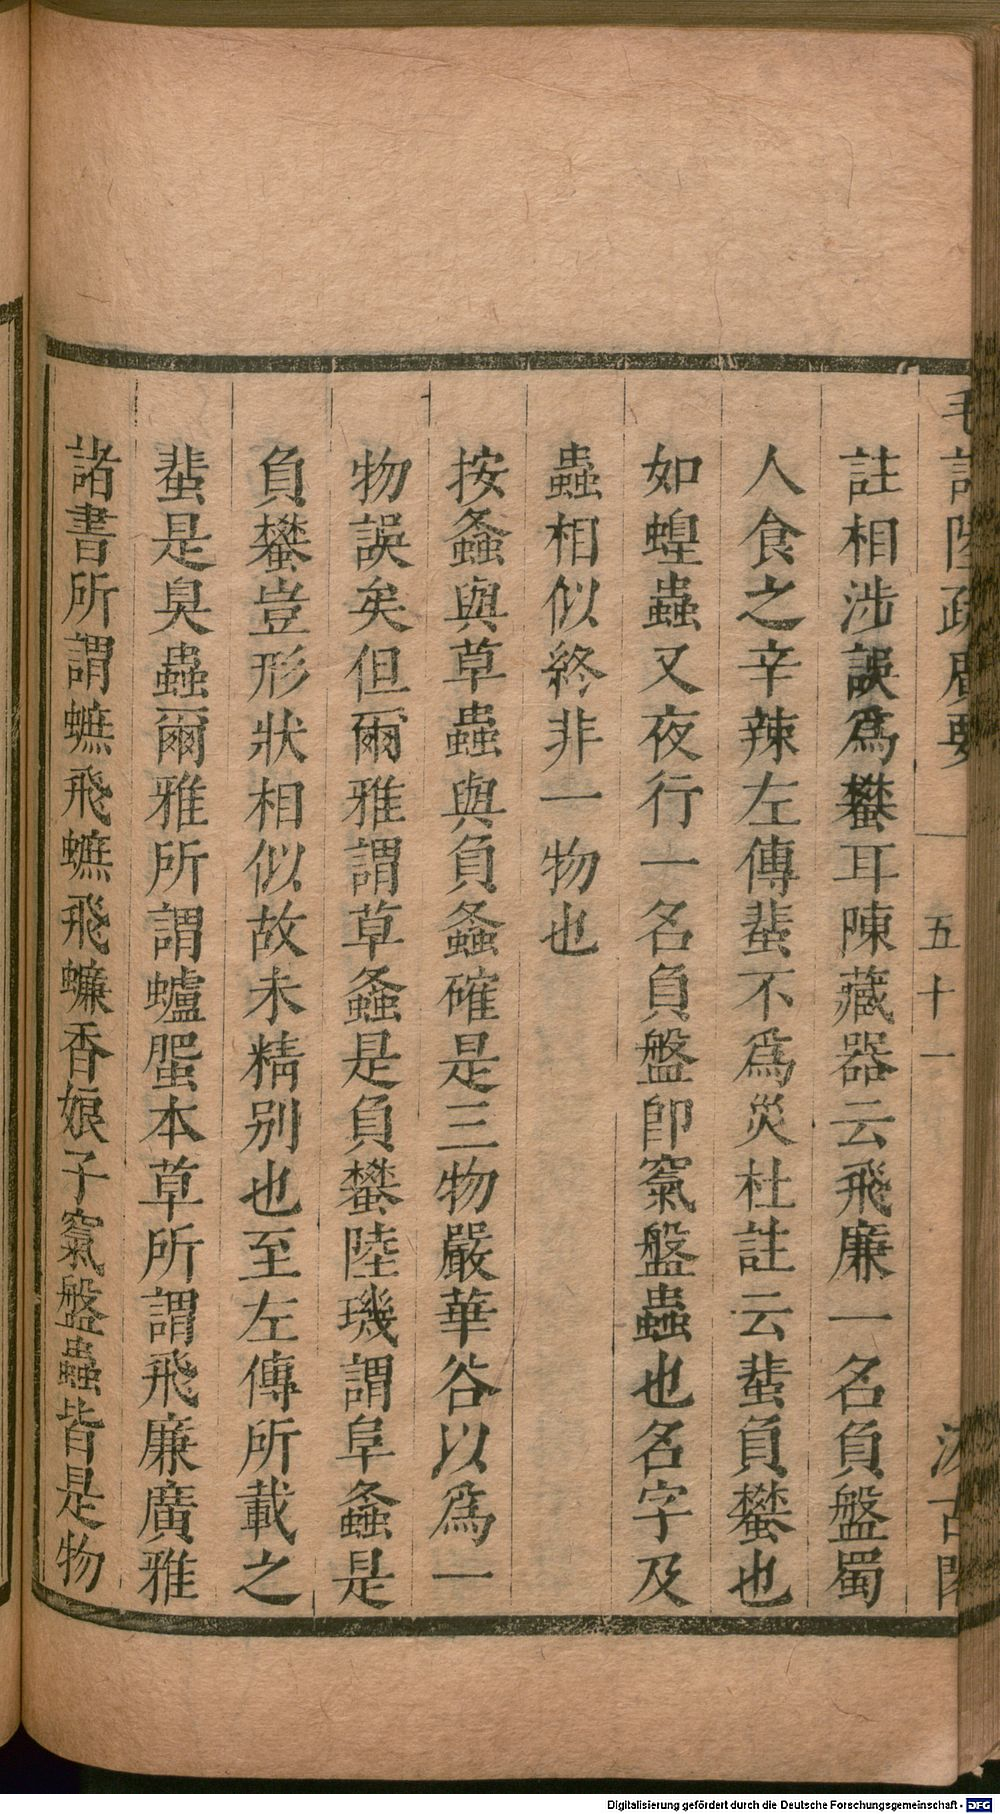 毛詩陸疏廣要
五十一
汲古閣
註相涉誤爲蠜耳陳藏器云飛廉一名負盤蜀
人食之辛辣左傳蜚不爲災杜註云蜚負蠜也
如蝗蟲又夜行一名負盤卽䆠盤蟲也名字及
蟲相似終非一物也
按螽與草蟲與負螽確是三物嚴華谷以爲一
物誤矣但爾雅謂草螽是負蠜陸璣謂阜螽是
負蠜豈形狀相似故未精別也至左傳所載之
蜚是臭蟲爾雅所謂蠦蜰本草所謂飛廉廣雅
諸書所謂蟅飛蟅飛蠊香娘子䆠盤蟲皆是物
Digitalisierung gefördert durch die Deutsche Forschungsgemeinschaft - DFG